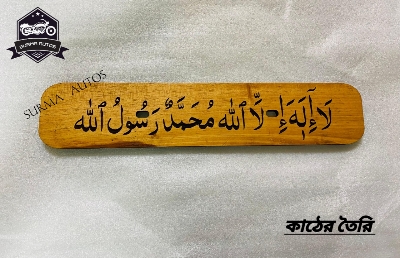 SURMA AUTOS
SURMA AUTOS
لَآ إِلَٰهَ إِلَّا ٱللَّٰه مُحَمَّدٌ رَسُولُ ٱللَّٰه
কাঠের তৈরি